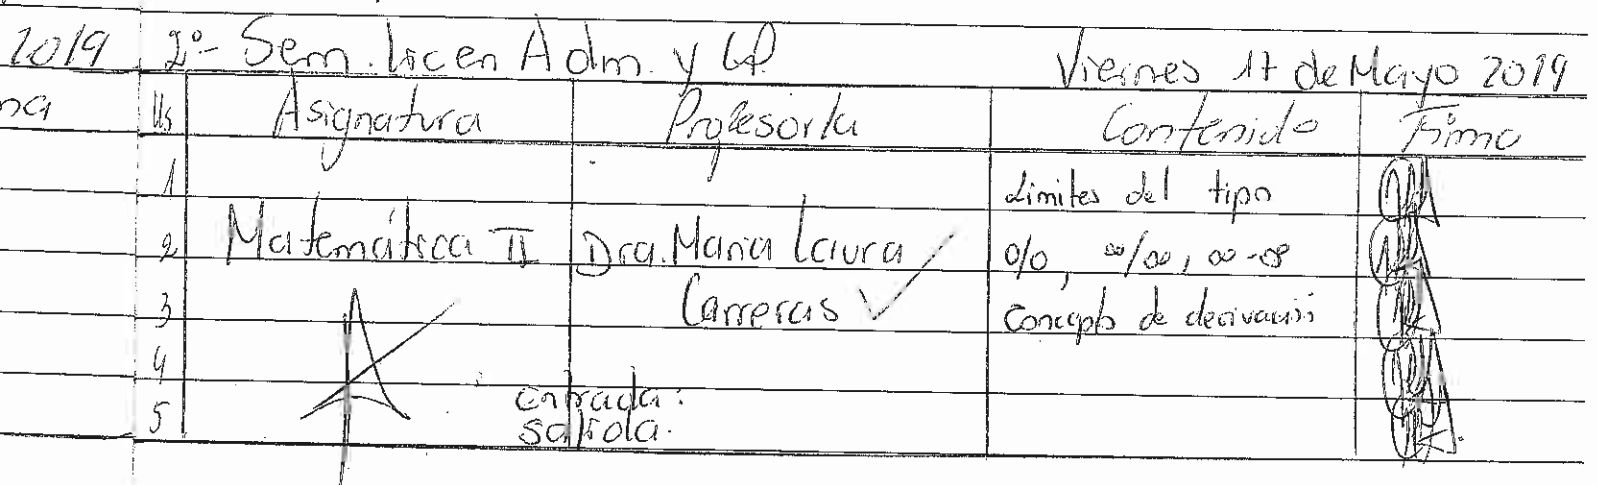 2019 2º- Sem. Lic en Adm. y GP. Viernes 17 de Mayo 2019
na Hs Asignatura Profesor/a Contenido Firma
1 Limites del tipo
2 Matemática II Dra. Maria Laura 0/0, ∞/∞, ∞-∞
3 Carreras Concepto de derivación
4
entrada:
5 salida.